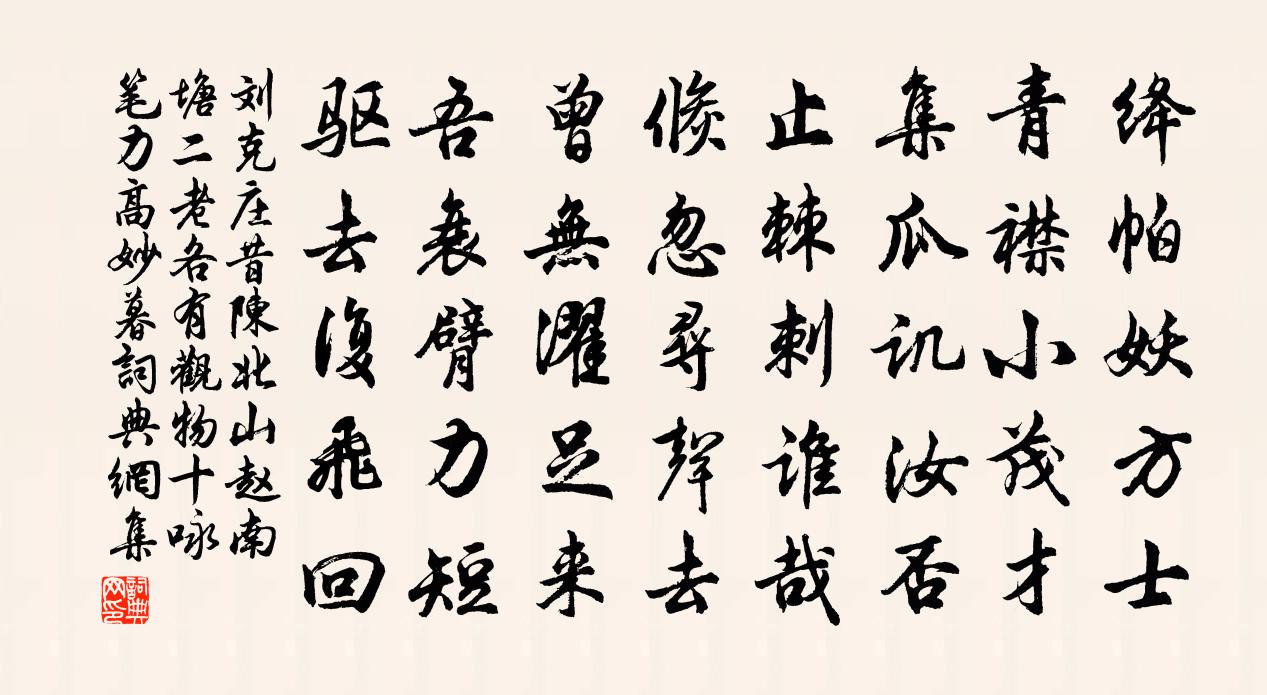 绛帕妖方士
青襟小茂才
集瓜讥汝否
止棘刺谁哉
倏忽尋聲去
曾無濯足来
吾衰臂力短
驱去復飛回
刘克庄昔陳北山赵南
塘二老各有觀物十咏
笔力高妙暮詞典網集
詞典
网印